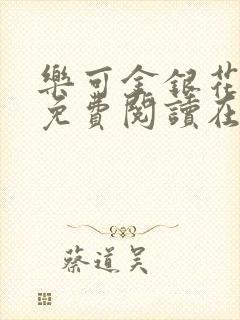 樂可金銀花
免費閱讀在
蔡道吴